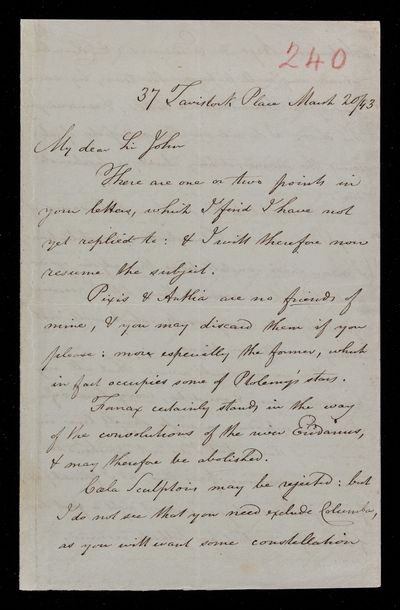 240
37 Tavistock Place March 20/43
My dear Sir John
There are one or two points in
your letters, which I find I have not
yet replied to: & I will therefore now
resume the subject.
Pixis & Antlia are no friends of
mine, & you may discard them if you
please: more especially the former, which
in fact occupies some of Ptolemy's stars.
Fornax certainly stands in the way
of the convolutions of the river Eridanus,
& may therefore be abolished.
Cæla Sculptoris may be rejected: but
I do not see that you need exclude Columba,
as you will want some constellation